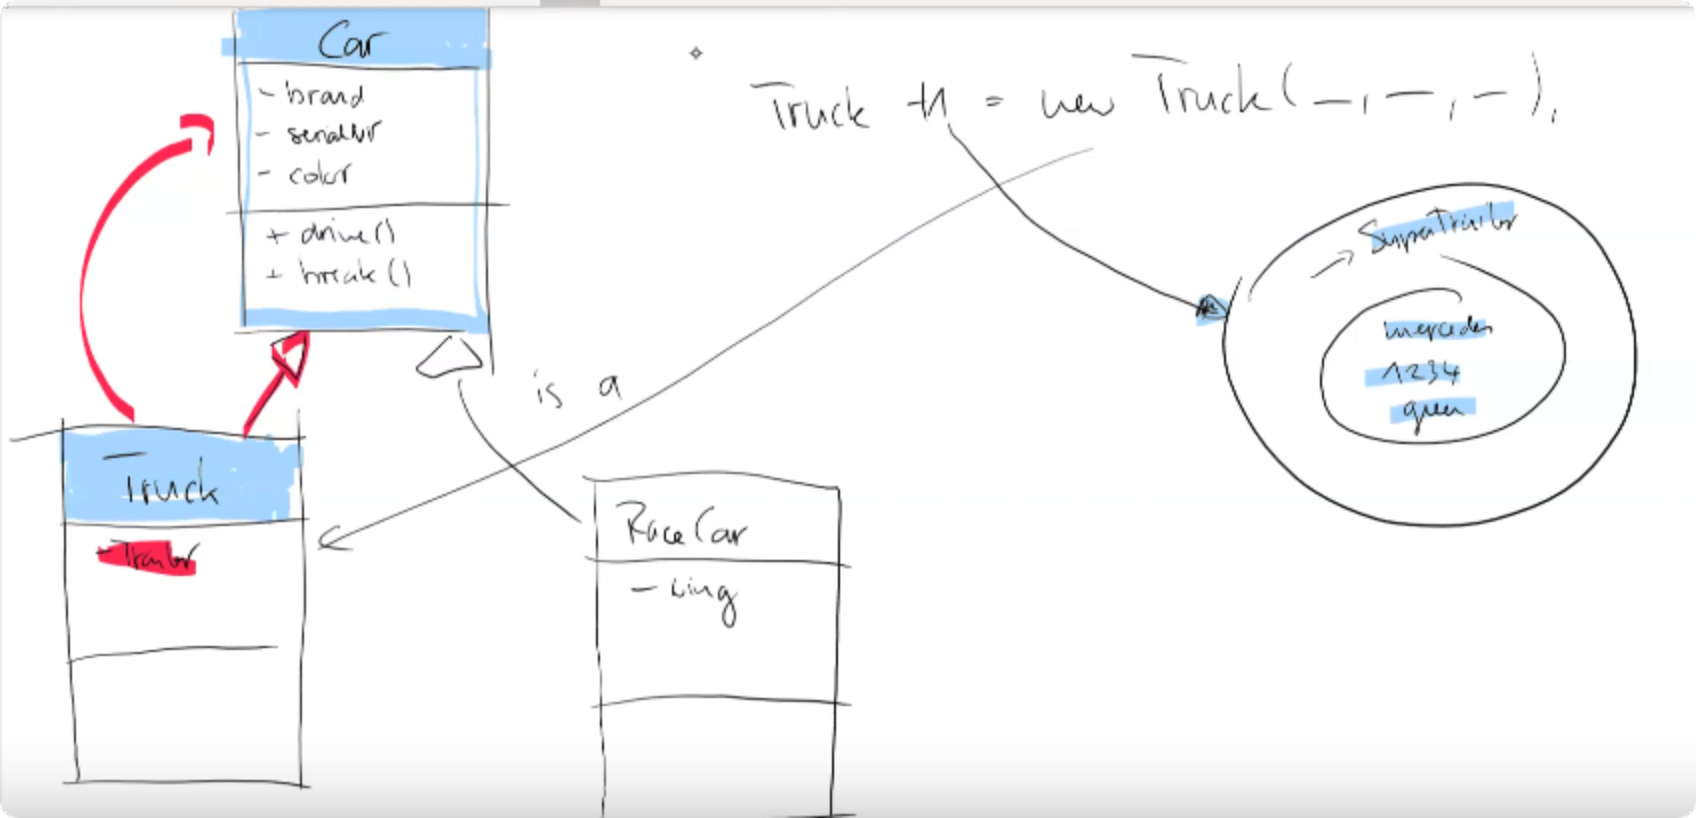 Car
- brand
- serialNr
- color
+ drive()
+ break()
Truck t1 = new Truck(_, _, _);
SuperTrailer
mercedes
1234
green
is a
Truck
- Trailer
RaceCar
- wing